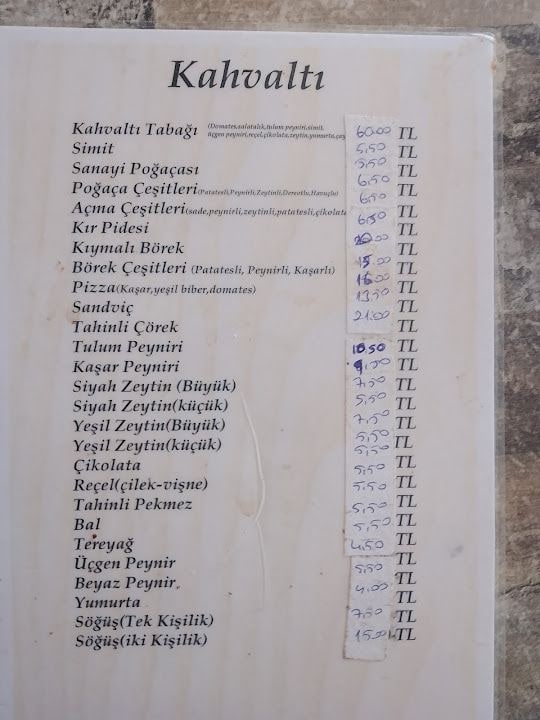 Kahvaltı
Kahvaltı Tabağı (Domates,salatalık,tulum peyniri,simit, 60.00 TL
üçgen peyniri,reçel,çikolata,zeytin,yumurta,çay
Simit 5,50 TL
Sanayi Poğaçası 5,50 TL
Poğaça Çeşitleri(Patatesli,Peynirli,Zeytinli,Dereotlu,Havuçlu) 6,50 TL
Açma Çeşitleri(sade,peynirli,zeytinli,patatesli,çikolata 6,50 TL
Kır Pidesi 6,50 TL
Kıymalı Börek 20.00 TL
Börek Çeşitleri (Patatesli, Peynirli, Kaşarlı) 15.00 TL
Pizza(Kaşar,yeşil biber,domates) 16.00 TL
Sandviç 13,50 TL
Tahinli Çörek 21.00 TL
Tulum Peyniri 10.50 TL
Kaşar Peyniri 9,50 TL
Siyah Zeytin (Büyük) 7,50 TL
Siyah Zeytin(küçük) 5,50 TL
Yeşil Zeytin(Büyük) 7,50 TL
Yeşil Zeytin(küçük) 5,50 TL
Çikolata 5,50 TL
Reçel(çilek-vişne) 5,50 TL
Tahinli Pekmez 5,50 TL
Bal 5,50 TL
Tereyağ 5,50 TL
Üçgen Peynir 4,50 TL
Beyaz Peynir 5,50 TL
Yumurta 4,00 TL
Söğüş(Tek Kişilik) 7,50 TL
Söğüş(iki Kişilik) 15.00 TL